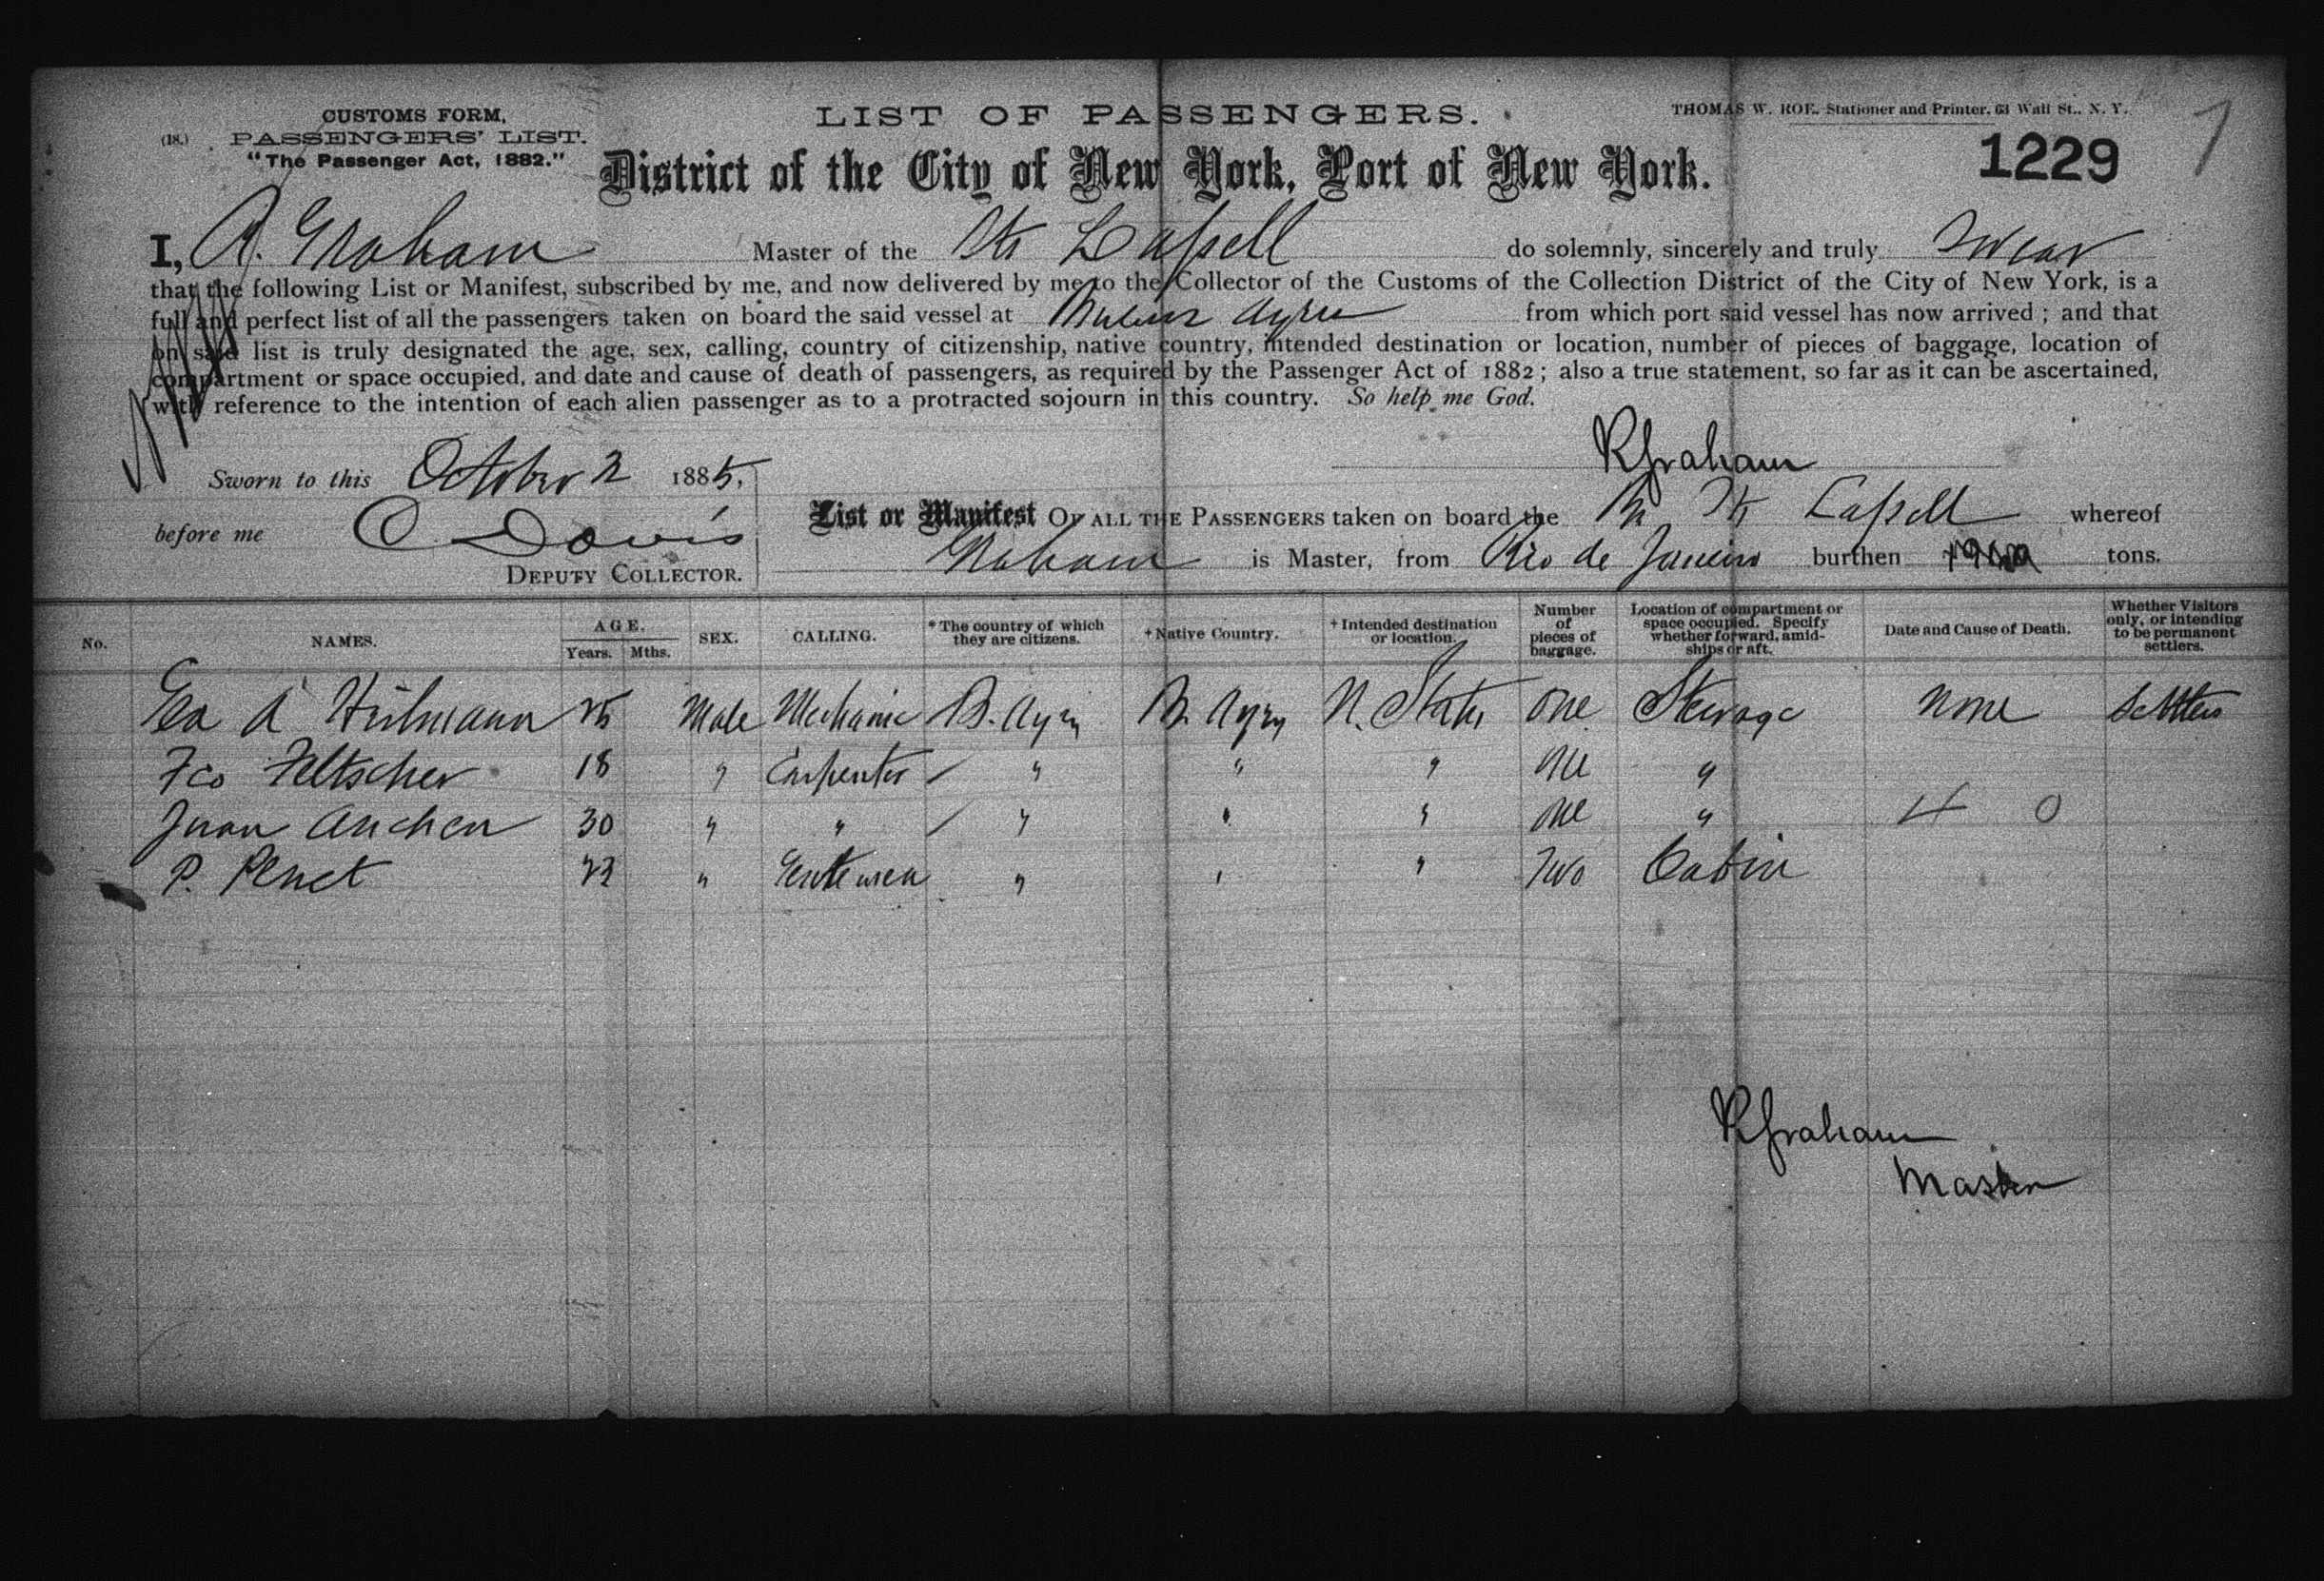 CUSTOMS FORM,
(18.) PASSENGERS' LIST.
"The Passenger Act, 1882."
LIST OF PASSENGERS.
THOMAS W. ROE, Stationer and Printer, 63 Wall St., N. Y.
District of the City of New York, Port of New York.
1229
I, R. Graham Master of the Str Lassell do solemnly, sincerely and truly Swear
that the following List or Manifest, subscribed by me, and now delivered by me to the Collector of the Customs of the Collection District of the City of New York, is a
full and perfect list of all the passengers taken on board the said vessel at Buenos Ayres from which port said vessel has now arrived ; and that
on said list is truly designated the age, sex, calling, country of citizenship, native country, intended destination or location, number of pieces of baggage, location of
compartment or space occupied, and date and cause of death of passengers, as required by the Passenger Act of 1882 ; also a true statement, so far as it can be ascertained,
with reference to the intention of each alien passenger as to a protracted sojourn in this country. So help me God.
RGraham
Sworn to this October 2 1885,
before me C Davis
DEPUTY COLLECTOR.
List or Manifest OF ALL THE PASSENGERS taken on board the Br Str Lassell whereof
Graham is Master, from Rio de Janeiro burthen tons.
No. NAMES. AGE. Years. Mths. SEX. CALLING. * The country of which they are citizens. † Native Country. † Intended destination or location. Number of pieces of baggage. Location of compartment or space occupied. Specify whether forward, amidships or aft. Date and Cause of Death. Whether Visitors only, or intending to be permanent settlers.
A 25 Male Mechanic B. Ayres B. Ayres U. States One Steerage None Settlers
Fco Feltscher 18 " Carpenter / " " " One "
Juan 30 " " / " " " One " 4 0
P. Penet " Gentleman " " " Two Cabin
RGraham
Master